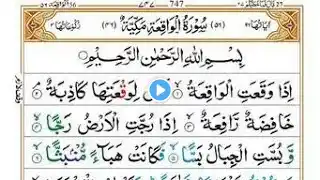 747
سُوْرَةُ الْوَاقِعَةِ مَكِّيَّةٌ
بِسْمِ اللّٰهِ الرَّحْمٰنِ الرَّحِيْمِ
اِذَا وَقَعَتِ الْوَاقِعَةُ لَيْسَ لِوَقْعَتِهَا كَاذِبَةٌ
خَافِضَةٌ رَّافِعَةٌ اِذَا رُجَّتِ الْاَرْضُ رَجًّا
وَّ بُسَّتِ الْجِبَالُ بَسًّا فَكَانَتْ هَبَآءً مُّنْۢبَثًّا